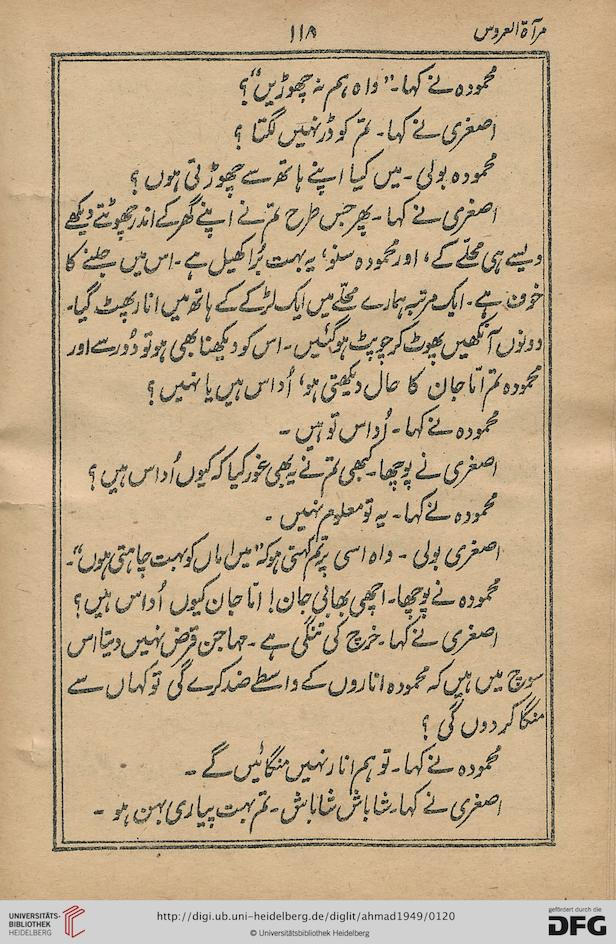 مرآۃ العروس
۱۱۸
محمودہ نے کہا۔ ”واہ ہم نہ چھوڑیں“؟
اصغری نے کہا۔ تم کو ڈر نہیں لگتا ؟
محمودہ بولی۔ میں کیا اپنے ہاتھ سے چھوڑتی ہوں ؟
اصغری نے کہا۔ پھر جس طرح تم نے اپنے گھر کے اندر چھوٹتے دیکھے
ویسے ہی محلّے کے، اور محمودہ سنو، یہ بہت بُرا کھیل ہے۔ اس میں جلنے کا
خوف ہے۔ ایک مرتبہ ہمارے محلّے میں ایک لڑکے کے ہاتھ میں انار پھٹ گیا۔
دونوں آنکھیں پھوٹ کر چوپٹ ہو گئیں۔ اس کو دیکھنا بھی ہو تو دُور سے اور
محمودہ تم امّا جان کا حال دیکھتی ہو، اُداس ہیں یا نہیں ؟
محمودہ نے کہا۔ اُداس تو ہیں ۔
اصغری نے پوچھا۔ کبھی تم نے یہ بھی غور کیا کہ کیوں اُداس ہیں ؟
محمودہ نے کہا۔ یہ تو معلوم نہیں ۔
اصغری بولی ۔ واہ اسی پر تم کہتی ہو کہ ”میں اماں کو بہت چاہتی ہوں“۔
محمودہ نے پوچھا۔ اچھی بھابی جان! امّا جان کیوں اُداس ہیں ؟
اصغری نے کہا۔ خرچ کی تنگی ہے ۔ مہاجن قرض نہیں دیتا اس
سوچ میں ہیں کہ محمودہ اناروں کے واسطے ضد کرے گی تو کہاں سے
منگا کر دوں گی ؟
محمودہ نے کہا۔ تو ہم انار نہیں منگائیں گے ۔
اصغری نے کہا۔ شاباش شاباش۔ تم بہت پیاری بہن ہو ۔
UNIVERSITÄTS-
BIBLIOTHEK
HEIDELBERG
http://digi.ub.uni-heidelberg.de/diglit/ahmad1949/0120
© Universitätsbibliothek Heidelberg
gefördert durch die
DFG